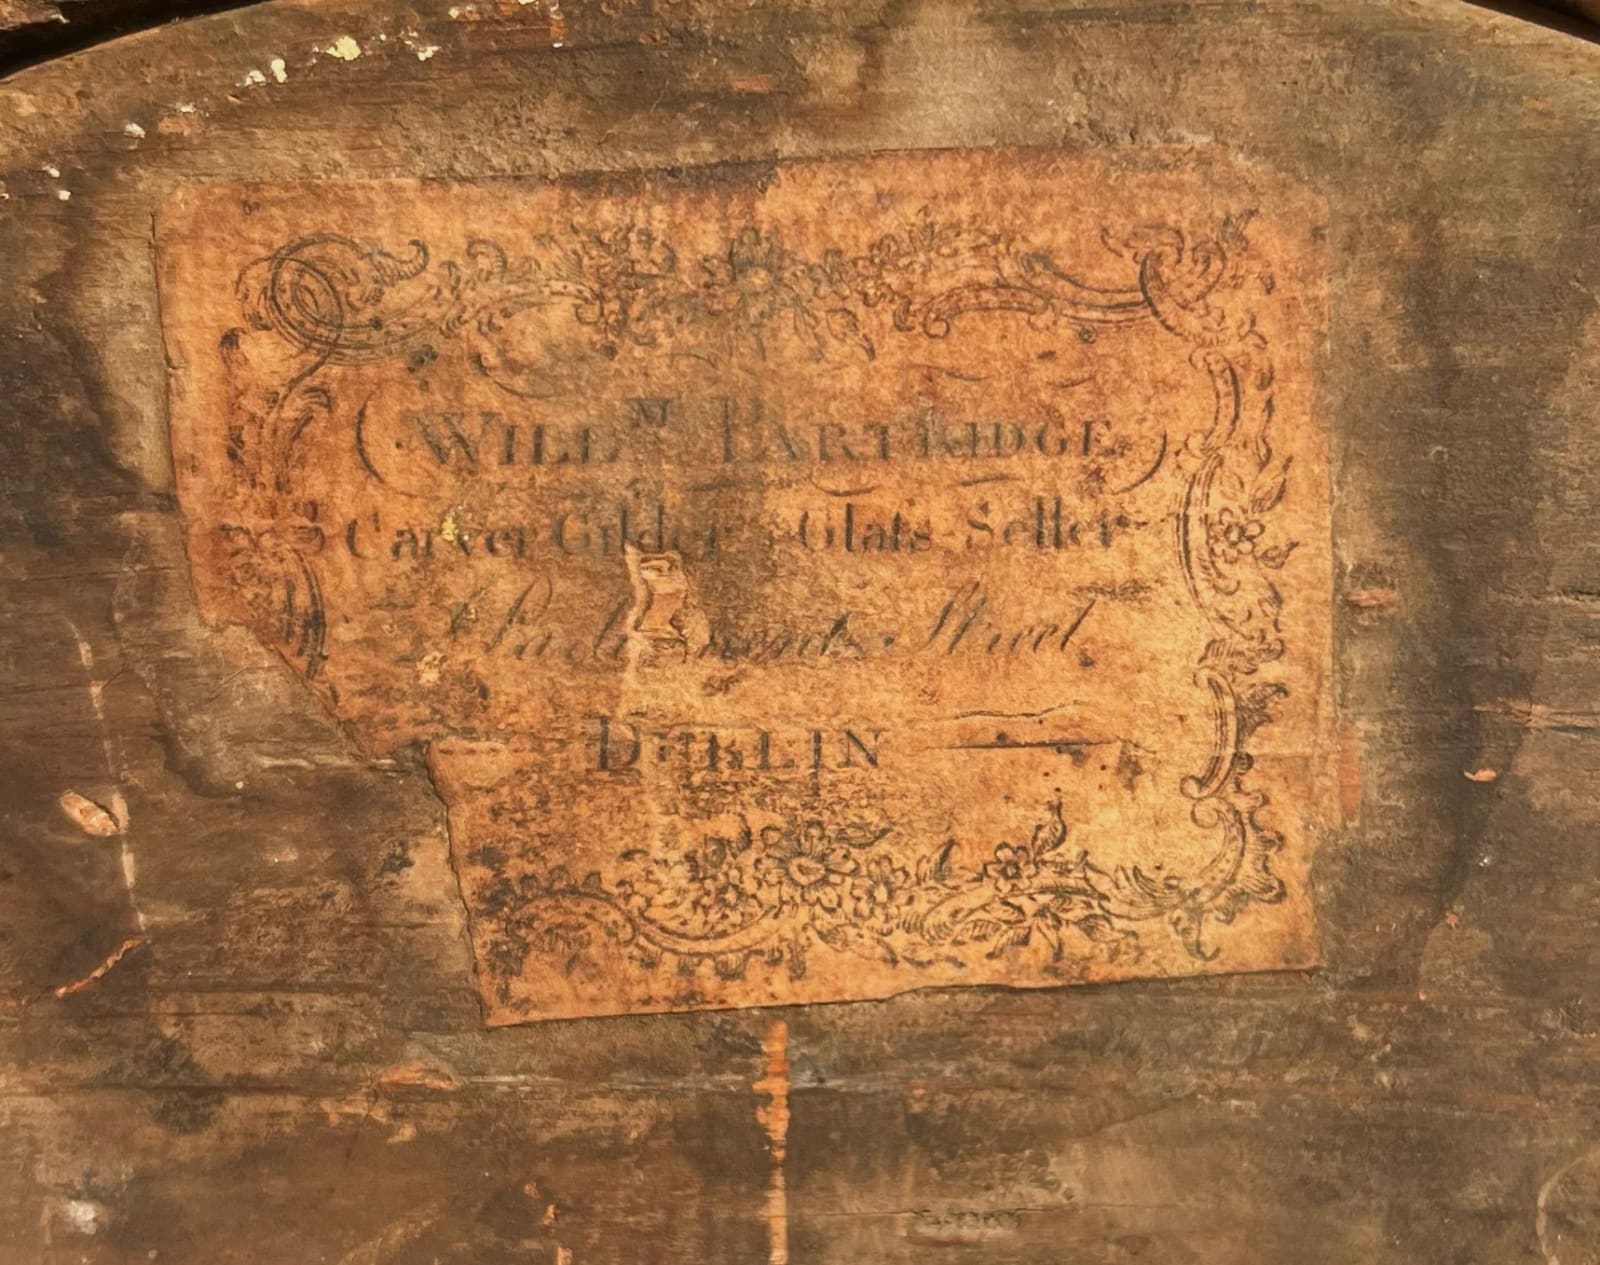 WILLM. PARTRIDGE
Carver Gilder & Glaſs Seller
Parliament Street
DUBLIN